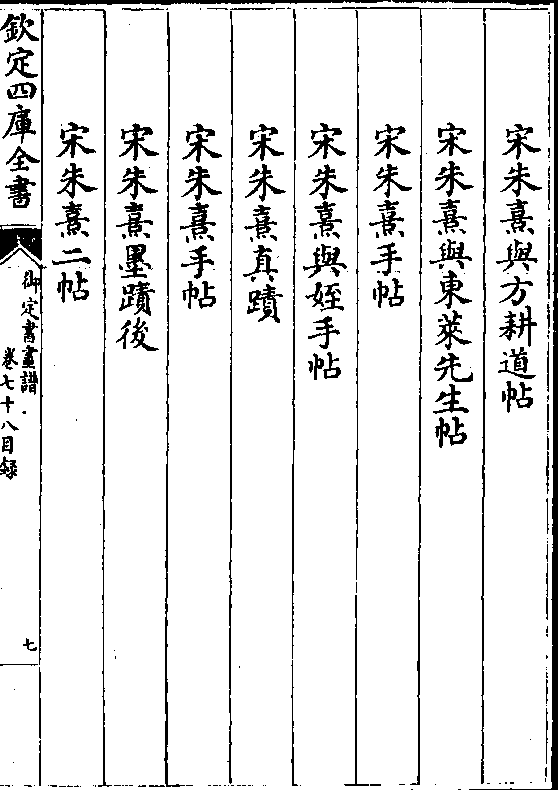 宋朱熹與方耕道帖
宋朱熹與東萊先生帖
宋朱熹手帖
宋朱熹與姪手帖
宋朱熹真蹟
宋朱熹手帖
宋朱熹墨蹟後
宋朱熹二帖
欽定四庫全書
御定書畫譜
卷七十八目録
七